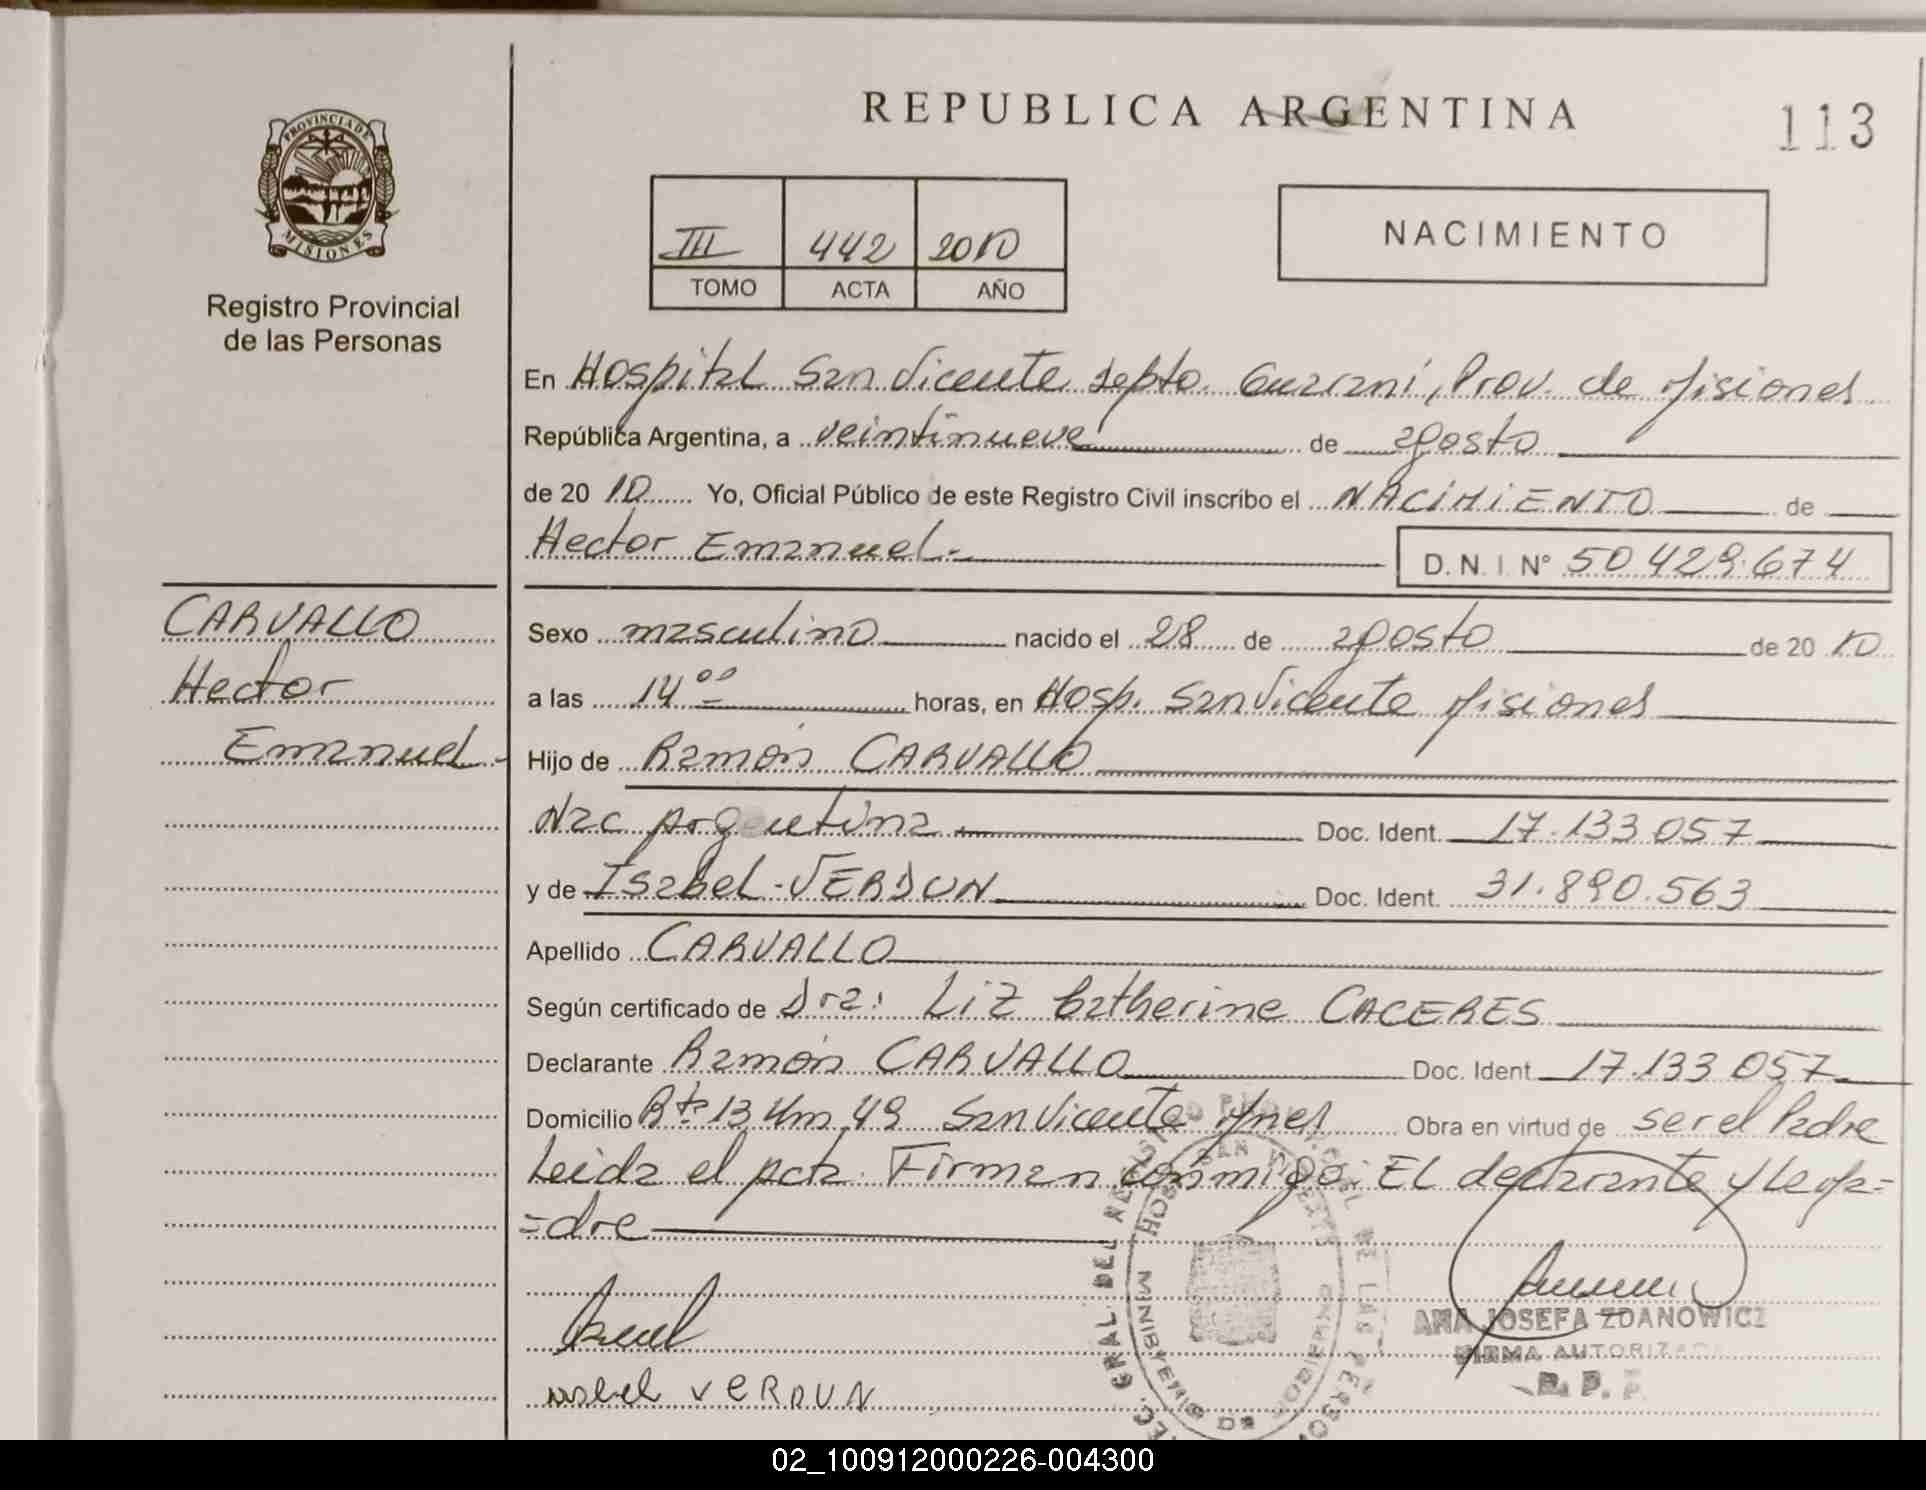 REPUBLICA ARGENTINA
113
PROVINCIA DE
MISIONES
Registro Provincial
de las Personas
III 442 2010
TOMO ACTA AÑO
NACIMIENTO
En Hospital San Vicente Depto. Guarani, Prov. de Misiones
República Argentina, a veintinueve de agosto
de 20 10 Yo, Oficial Público de este Registro Civil inscribo el NACIMIENTO de
Hector Emanuel.-
D. N. I. Nº 50 429.674
CARVALLO
Hector
Emanuel.-
Sexo masculino nacido el 28 de agosto de 20 10
a las 14 00 horas, en Hosp. San Vicente Misiones
Hijo de Ramón CARVALLO
Nac Argentina Doc. Ident. 17.133.057
y de Isabel - VERDUN Doc. Ident. 31.890.563
Apellido CARVALLO
Según certificado de Dra: Liz Catherine CACERES
Declarante Ramón CARVALLO Doc. Ident 17.133 057
Domicilio Rta 13 Km 49 San Vicente Mnes Obra en virtud de ser el Padre
Leida el acta. Firman conmigo: EL declarante y La Ma=
=dre
ANA JOSEFA ZDANOWICZ
FIRMA AUTORIZADA
R. P. P.
VERDUN
02_100912000226-004300